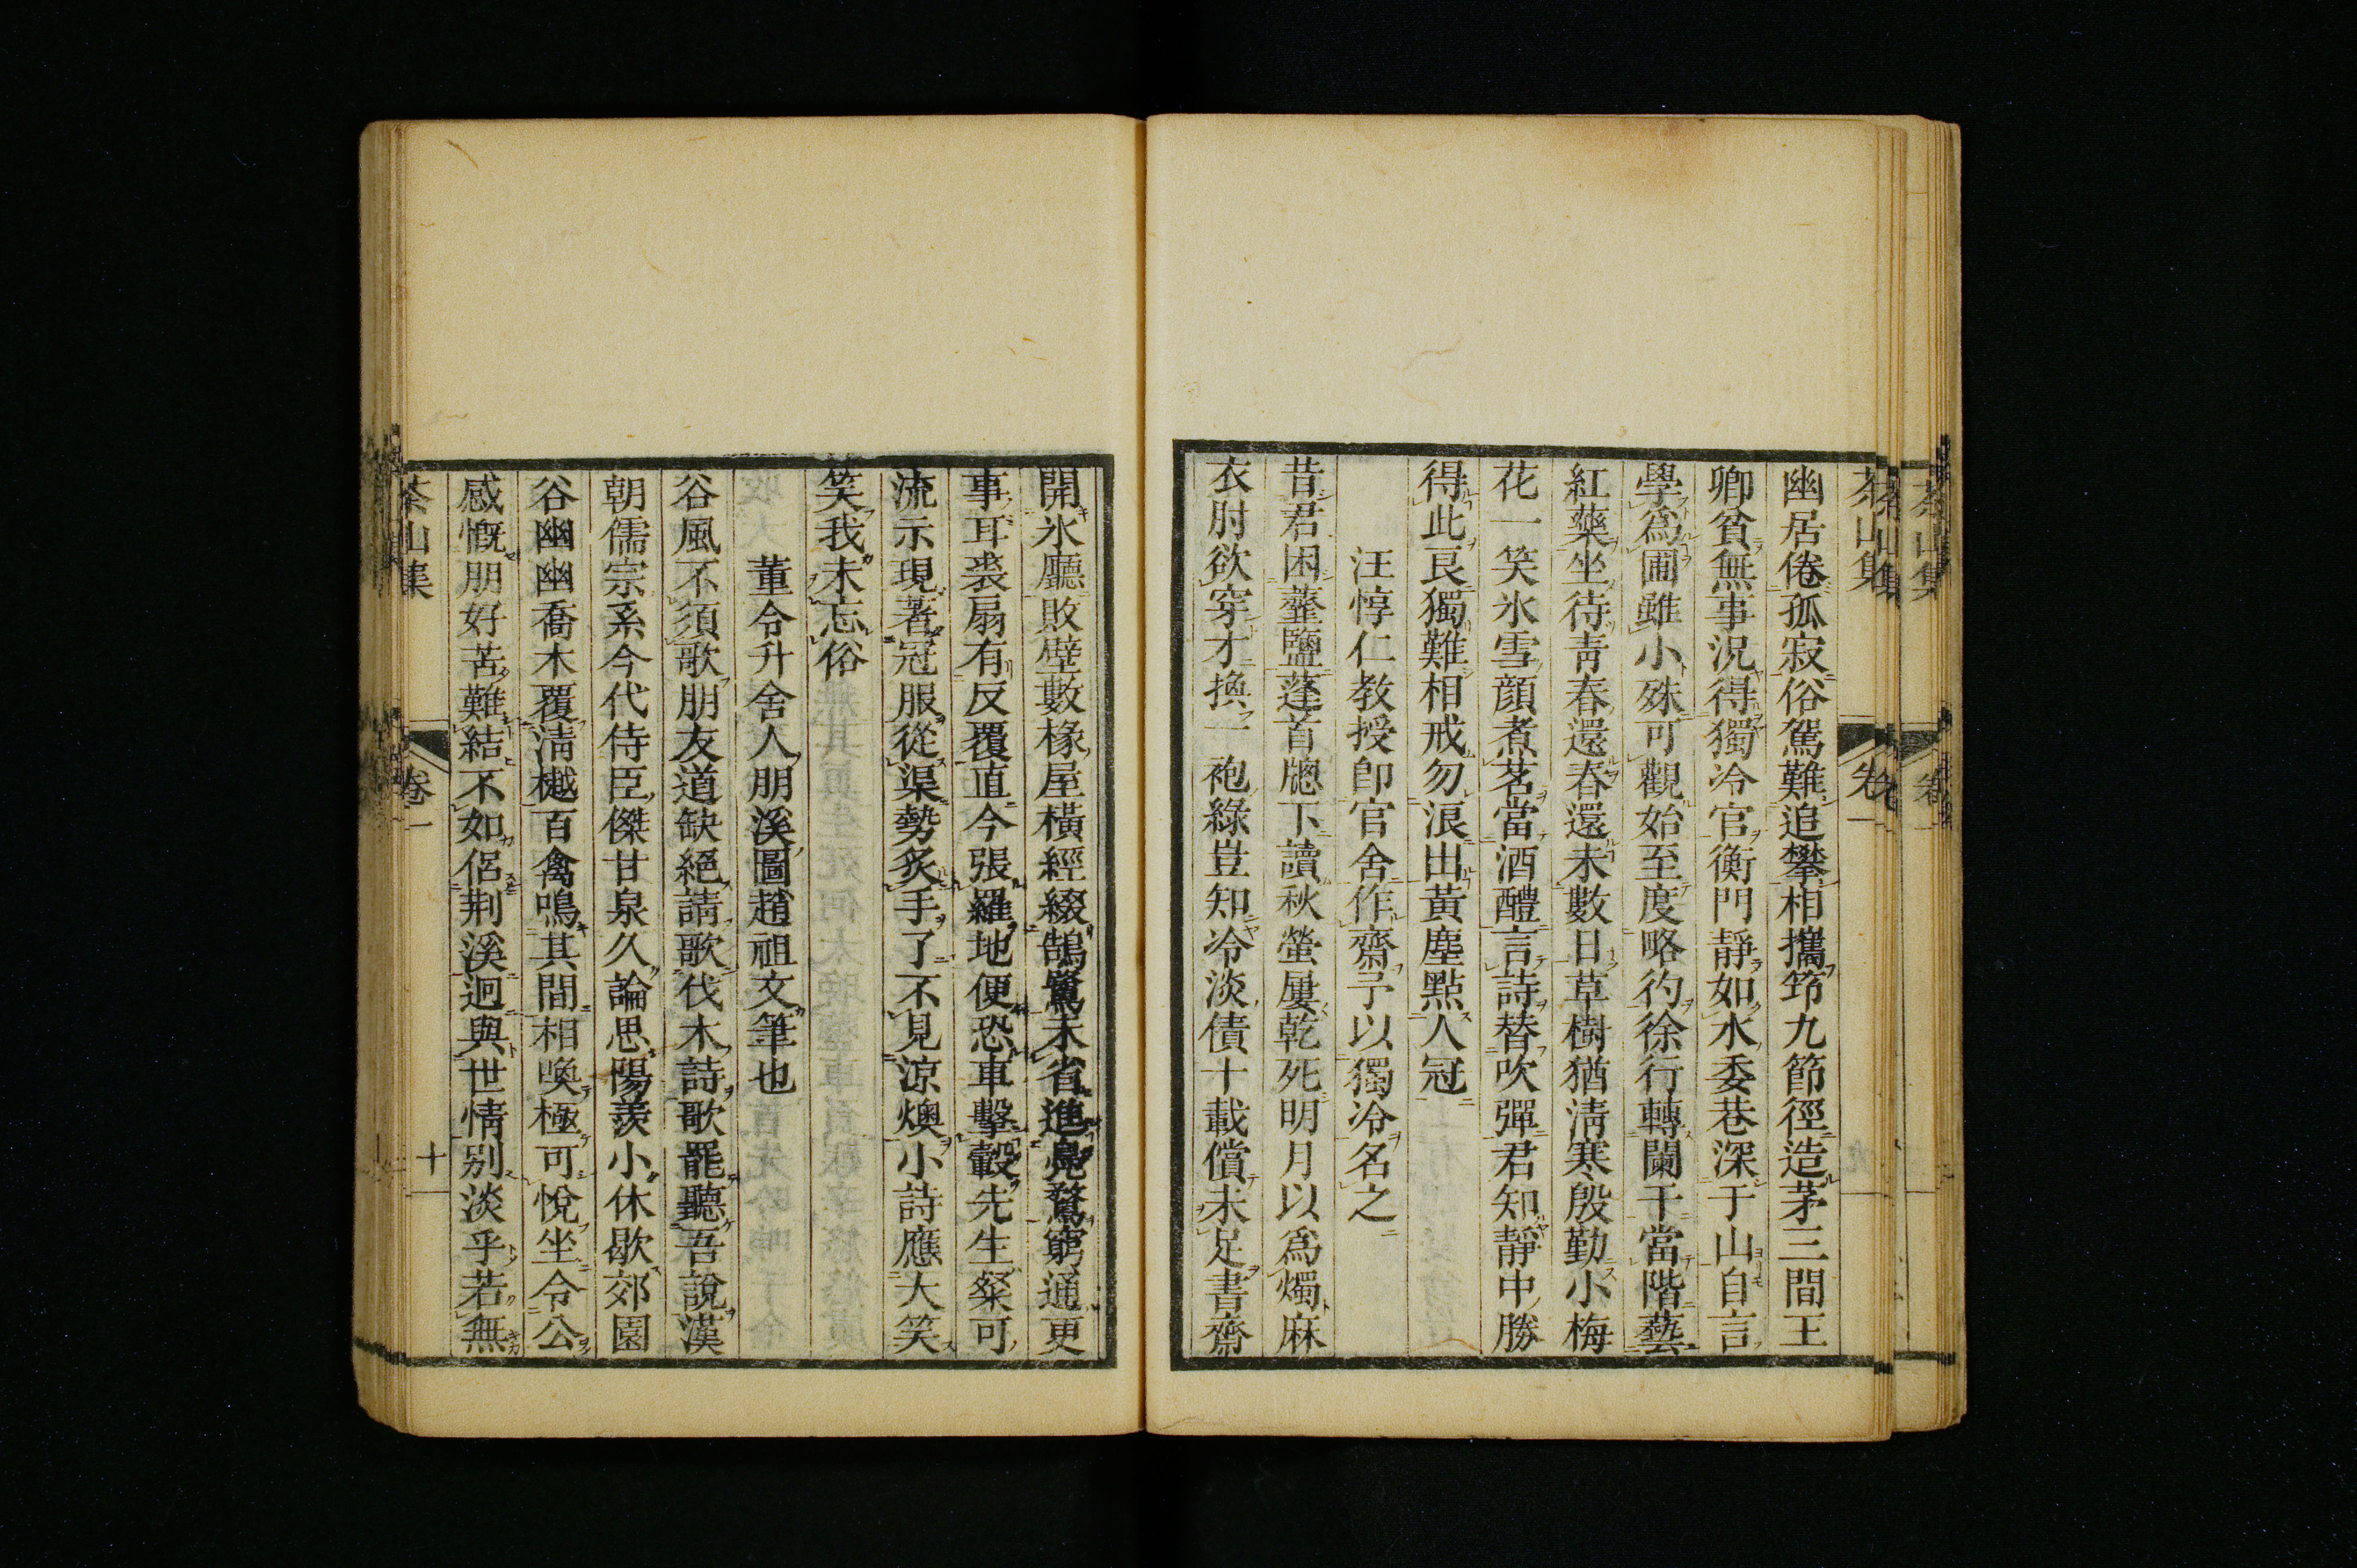 茶山集 卷一
幽居倦孤寂俗駕難追攀相攜筇九節徑造茅三間王
卿貧無事況得獨冷官衡門靜如水委巷深于山自言
學爲圃雖小殊可觀始至度略彴徐行轉闌干當階藝
紅藥坐待靑春還春還未數日草樹猶淸寒殷勤小梅
花一笑氷雪顔煮茗當酒醴言詩替吹彈君知靜中勝
得此良獨難相戒勿浪出黃塵點人冠
汪惇仁教授卽官舍作齋予以獨冷名之
昔君困虀鹽蓬首牕下讀秋螢屢乾死明月以爲燭麻
衣肘欲穿才換一袍綠豈知冷淡債十載償未足書齋
開氷廳敗壁數椽屋橫經綴鵠鷺未省進鳧鶩窮通更
事耳裘扇有反覆直今張羅地便恐車擊轂先生粲可
流示現著冠服從渠勢炙手了不見涼燠小詩應大笑
笑我未忘俗
董令升舍人朋溪圖趙祖文筆也
谷風不須歌朋友道缺絕請歌伐木詩歌罷聽吾說漢
朝儒宗系今代侍臣傑甘泉久論思陽羨小休歇郊園
谷幽幽喬木覆淸樾百禽鳴其間相喚極可悅坐令公
感慨朋好苦難結不如侶荆溪迥與世情別淡乎若無
茶山集 卷一 十